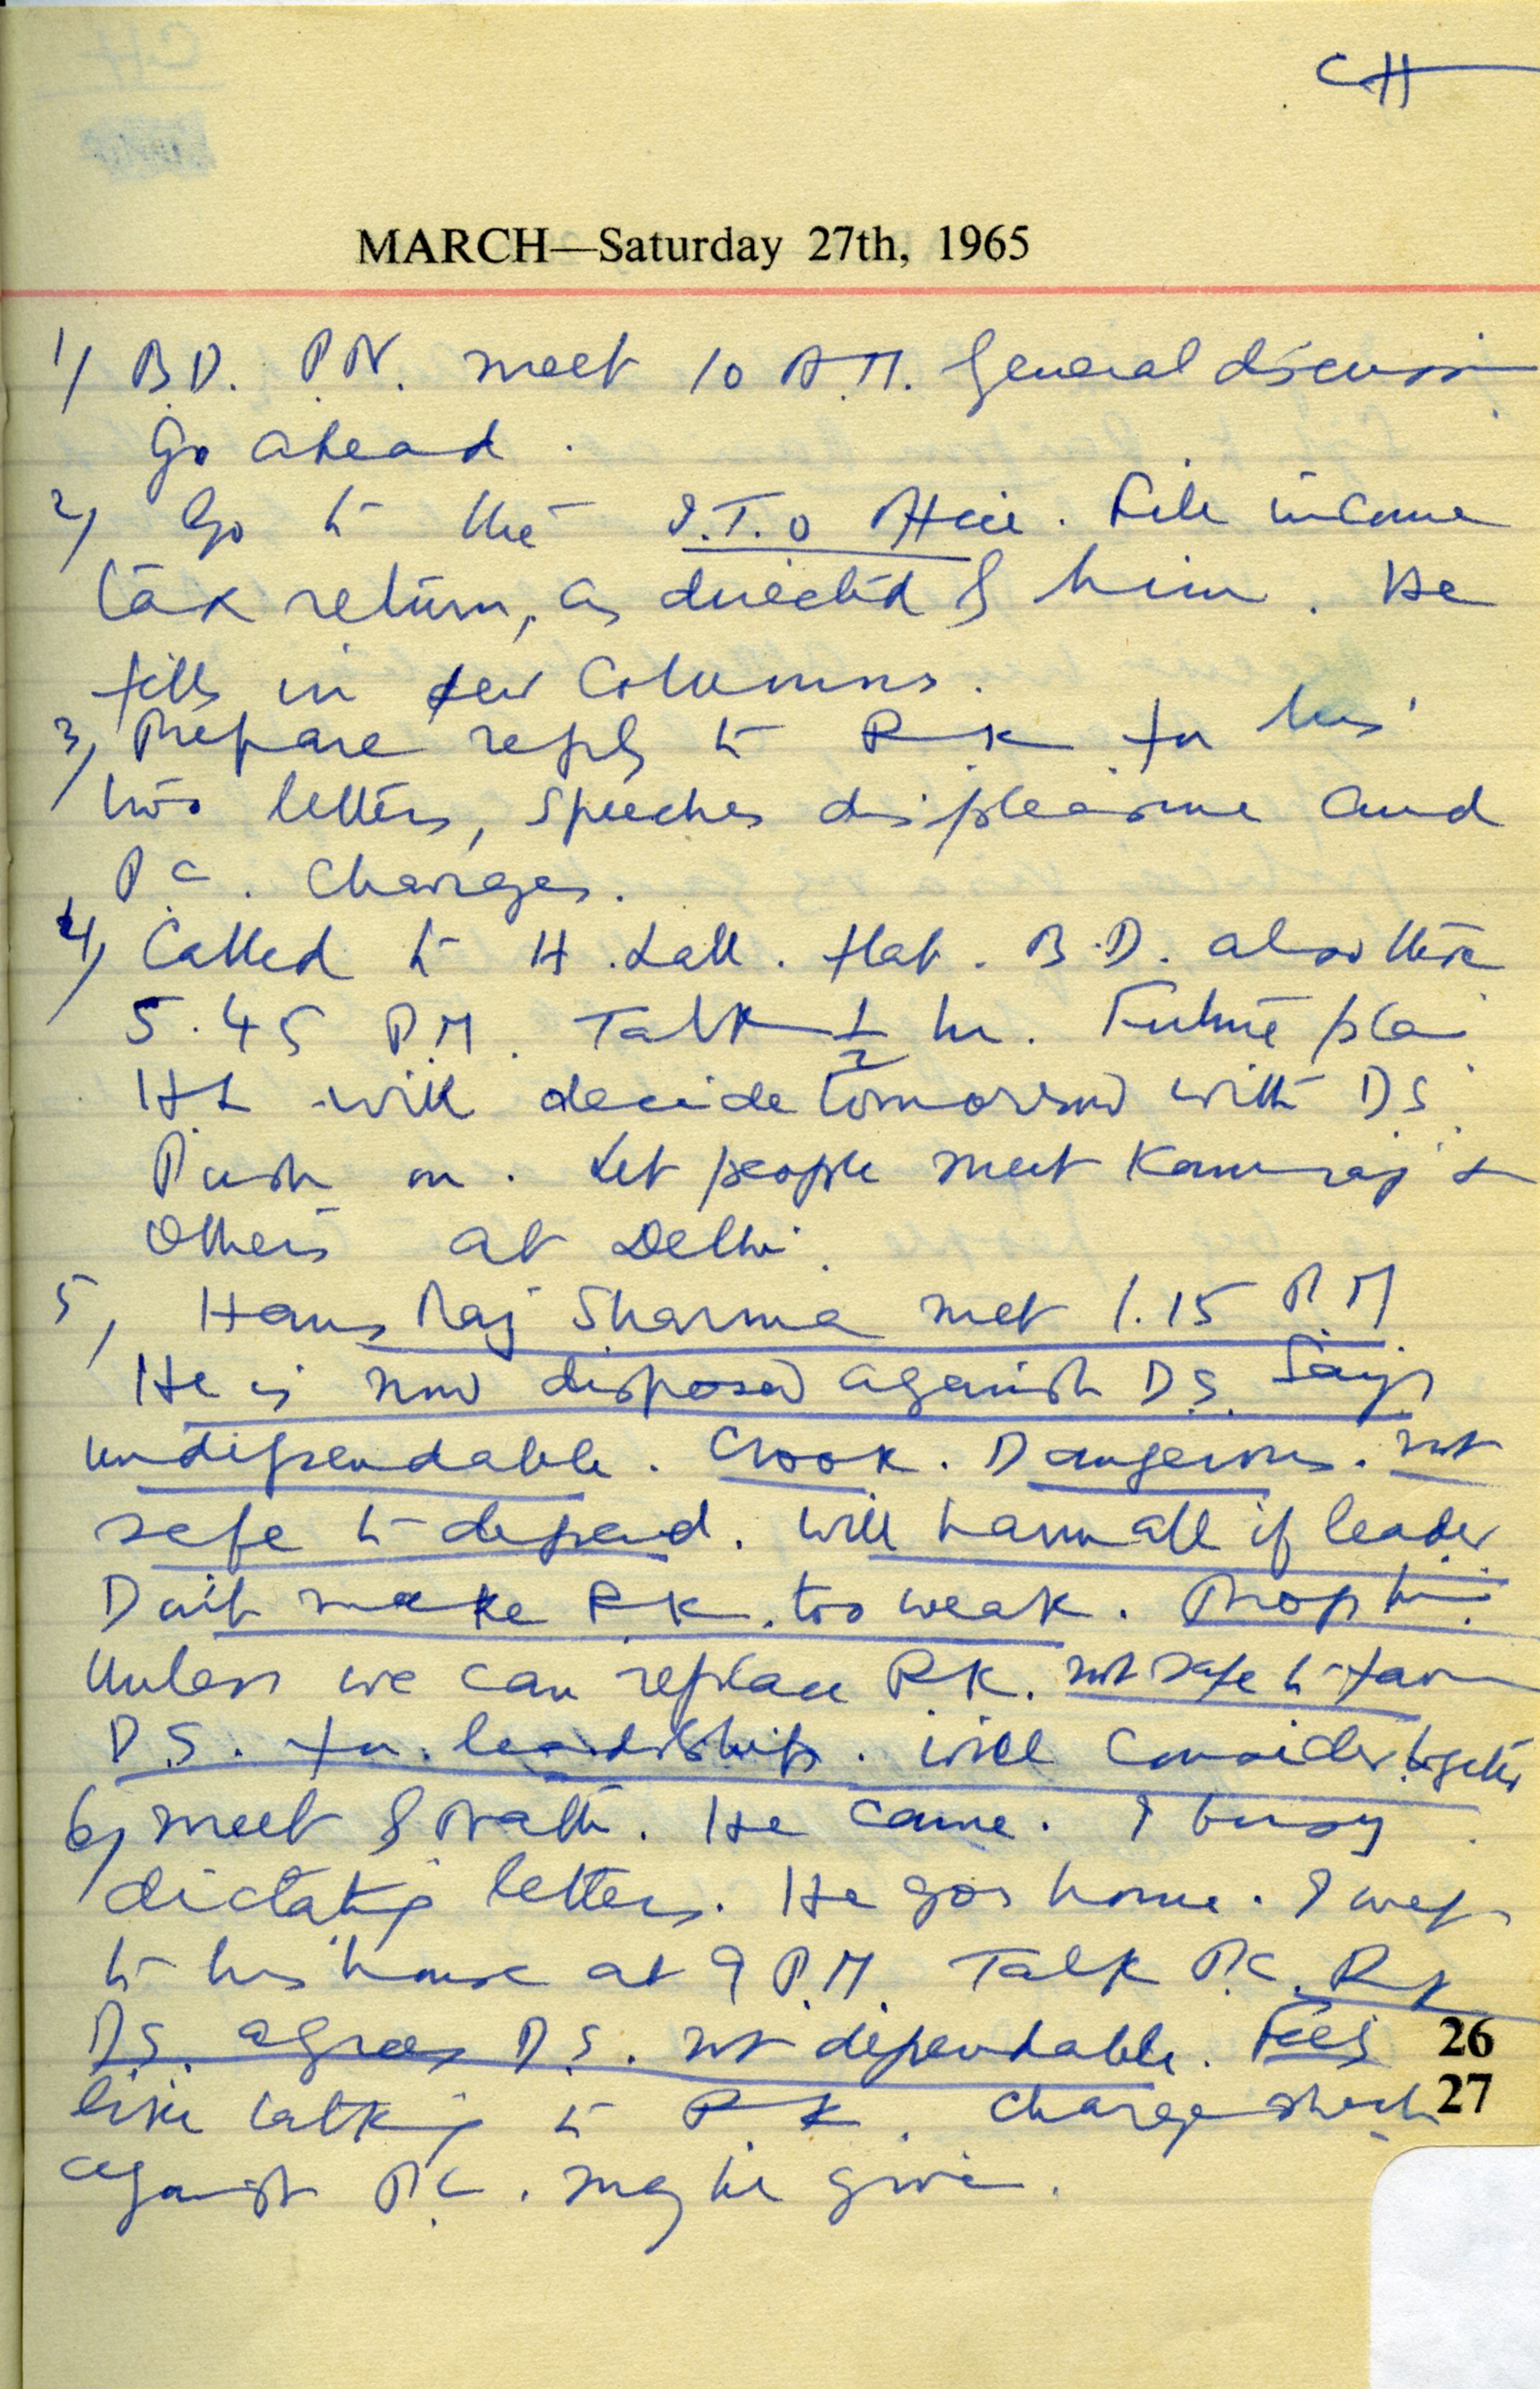 CH
MARCH—Saturday 27th, 1965
1) B.D. P.N. meet 10 A.M. General discussion
Go ahead.
2) Go to the I.T.O Office. File income
tax return, as directed by him. He
fills in few columns.
3) Prepare reply to R.K. for his
two letters, speeches displeasure and
P.C. Charges.
4) Called to H. Lall. flat. B.D. also there
5.45 P.M. Talk ½ hr. Future plan
HL will decide tomorrow with D.S.
Push on. Let people meet Kamraj &
others at Delhi.
5) Hans Raj Sharma met 1.15 P.M
He is now disposed against D.S. Says
undependable. Crook. Dangerous. not
safe to depend. Will harm all if leader
Don't make R.K. too weak. Prop him.
Unless we can replace R.K. not safe to favour
D.S. for leadership. Will consider together
6) Meet Nath. He came. I busy
dictating letters. He goes home. I
to his house at 9 P.M. Talk P.C. R.K
D.S. agrees D.S. not dependable. Feels
like talking to R.K. Charge sheet
against P.C. may be given.
26
27